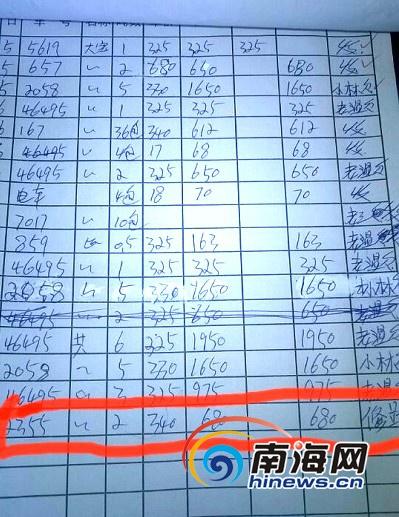 日 车 号 名称
5 5619 大宝 1 325 325 325
5 657 〃 2 680 650 680
5 2058 〃 5 330 1650 1650 小林欠
6 46495 〃 1 325 325 325 老温欠
6 167 〃 36包 340 612 612
46495 〃 4包 17 68 68
46495 〃 2 325 650 650 老温欠
电车 4包 18 70 70
7017 〃 10包
859 0.5 325 163 163 老温
46495 〃 1 325 325 325 老温欠
2058 〃 5 330 1650 1650 小林欠
46495 〃 2 325 650 650 老温欠
46495 共 6 325 1950 1950 老温欠
2058 〃 5 330 1650 1650 小林
46495 3 325 975 975 老温欠
2355 〃 2 340 680 680
南海网
hinews.cn